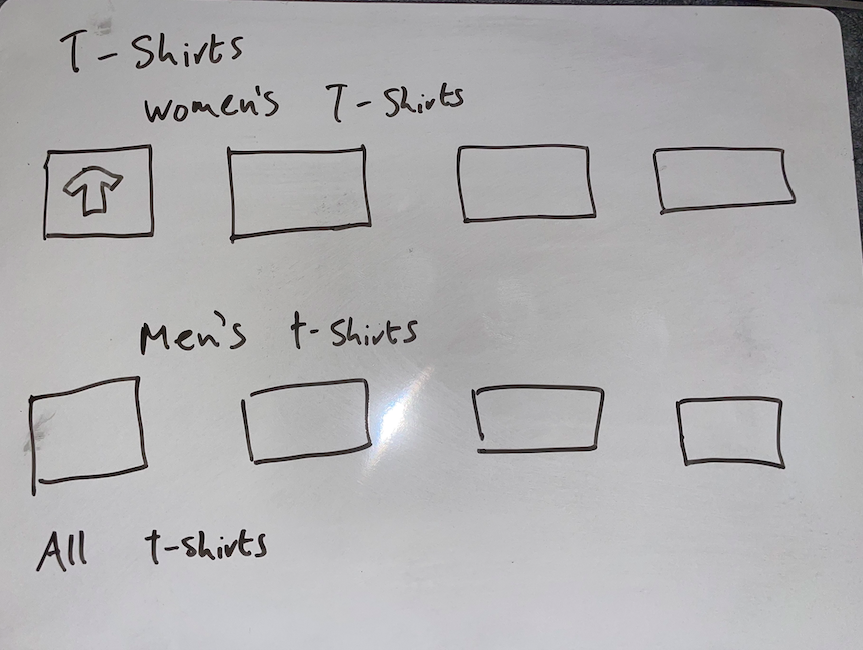 T-Shirts
Women's T-Shirts
Men's t-shirts
All t-shirts